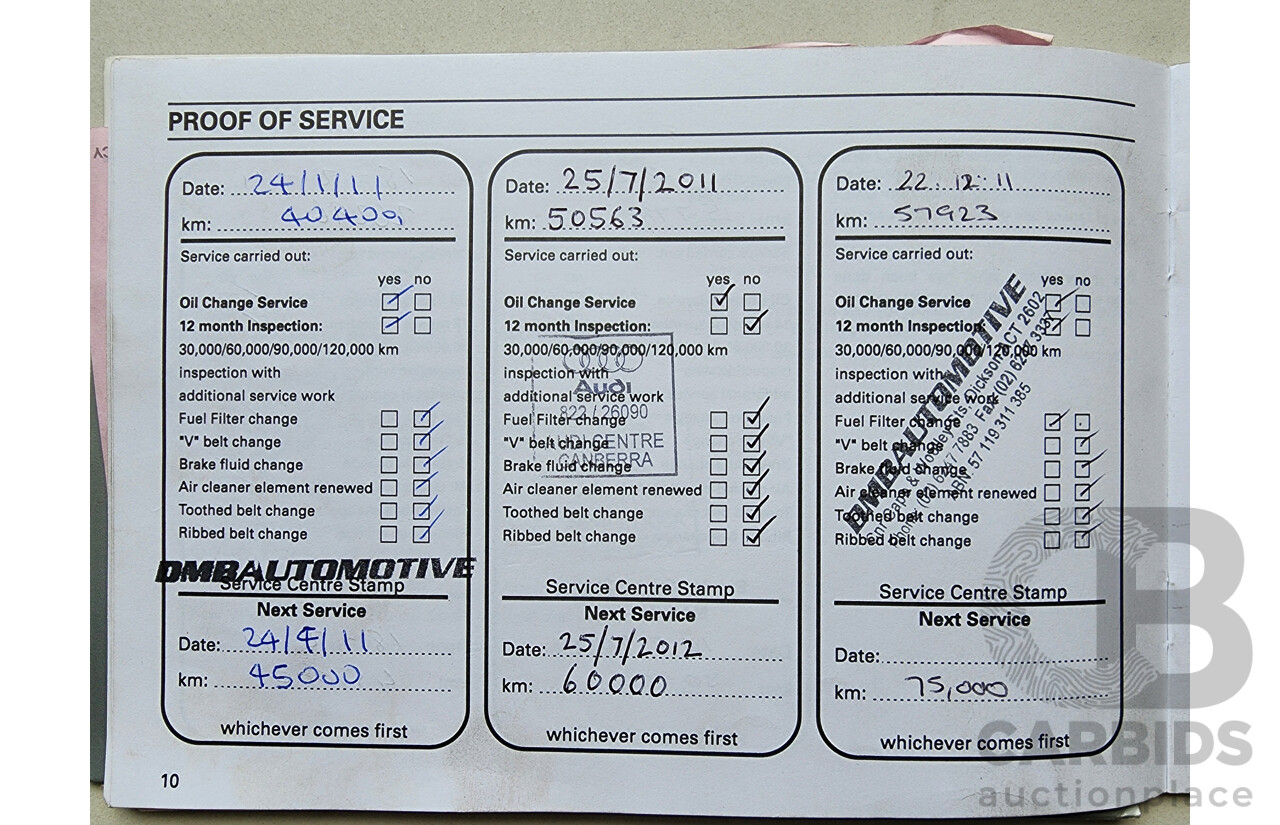 PROOF OF SERVICE
Date: 24/1/11
km: 40400
Service carried out:
yes no
Oil Change Service
12 month Inspection:
30,000/60,000/90,000/120,000 km
inspection with
additional service work
Fuel Filter change
"V" belt change
Brake fluid change
Air cleaner element renewed
Toothed belt change
Ribbed belt change
DMBAUTOMOTIVE
Service Centre Stamp
Next Service
Date: 24/4/11
km: 45000
whichever comes first
Date: 25/7/2011
km: 50563
Service carried out:
yes no
Oil Change Service
12 month Inspection:
30,000/60,000/90,000/120,000 km
inspection with
additional service work
Fuel Filter change
"V" belt change
Brake fluid change
Air cleaner element renewed
Toothed belt change
Ribbed belt change
Audi
822 / 26090
AUDI CENTRE
CANBERRA
Service Centre Stamp
Next Service
Date: 25/7/2012
km: 60000
whichever comes first
Date: 22.12.11
km: 57923
Service carried out:
yes no
Oil Change Service
12 month Inspection:
30,000/60,000/90,000/120,000 km
inspection with
additional service work
Fuel Filter change
"V" belt change
Brake fluid change
Air cleaner element renewed
Toothed belt change
Ribbed belt change
DMBAUTOMOTIVE
Sts, Dickson ACT 2602
7883 Fax (02)
ABN 57 119 311 385
Service Centre Stamp
Next Service
Date:
km: 75,000
whichever comes first
10
CB
CARBIDS
auctionplace